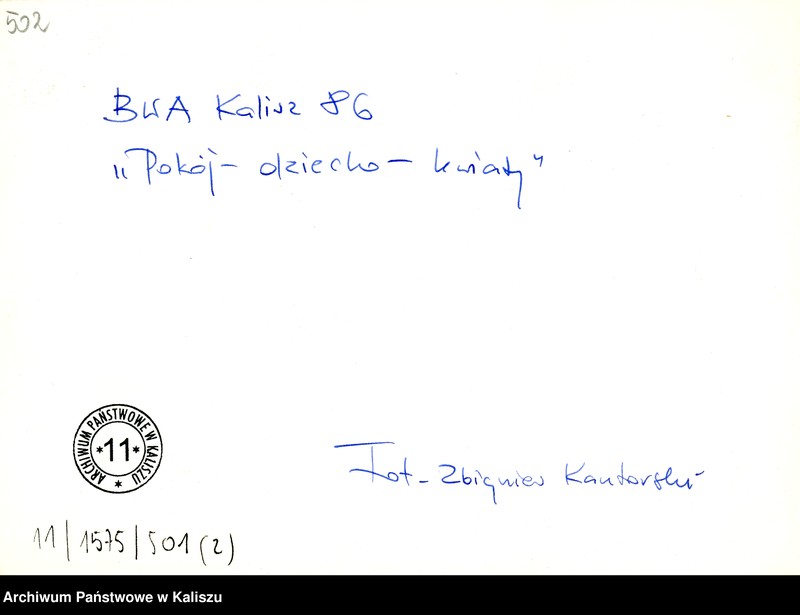 502
BWA Kalisz 86
„Pokój – dziecko – kwiaty"
Fot – Zbigniew Kantorski
ARCHIWUM PAŃSTWOWE W KALISZU
*11*
11/1575/501 (2)
Archiwum Państwowe w Kaliszu